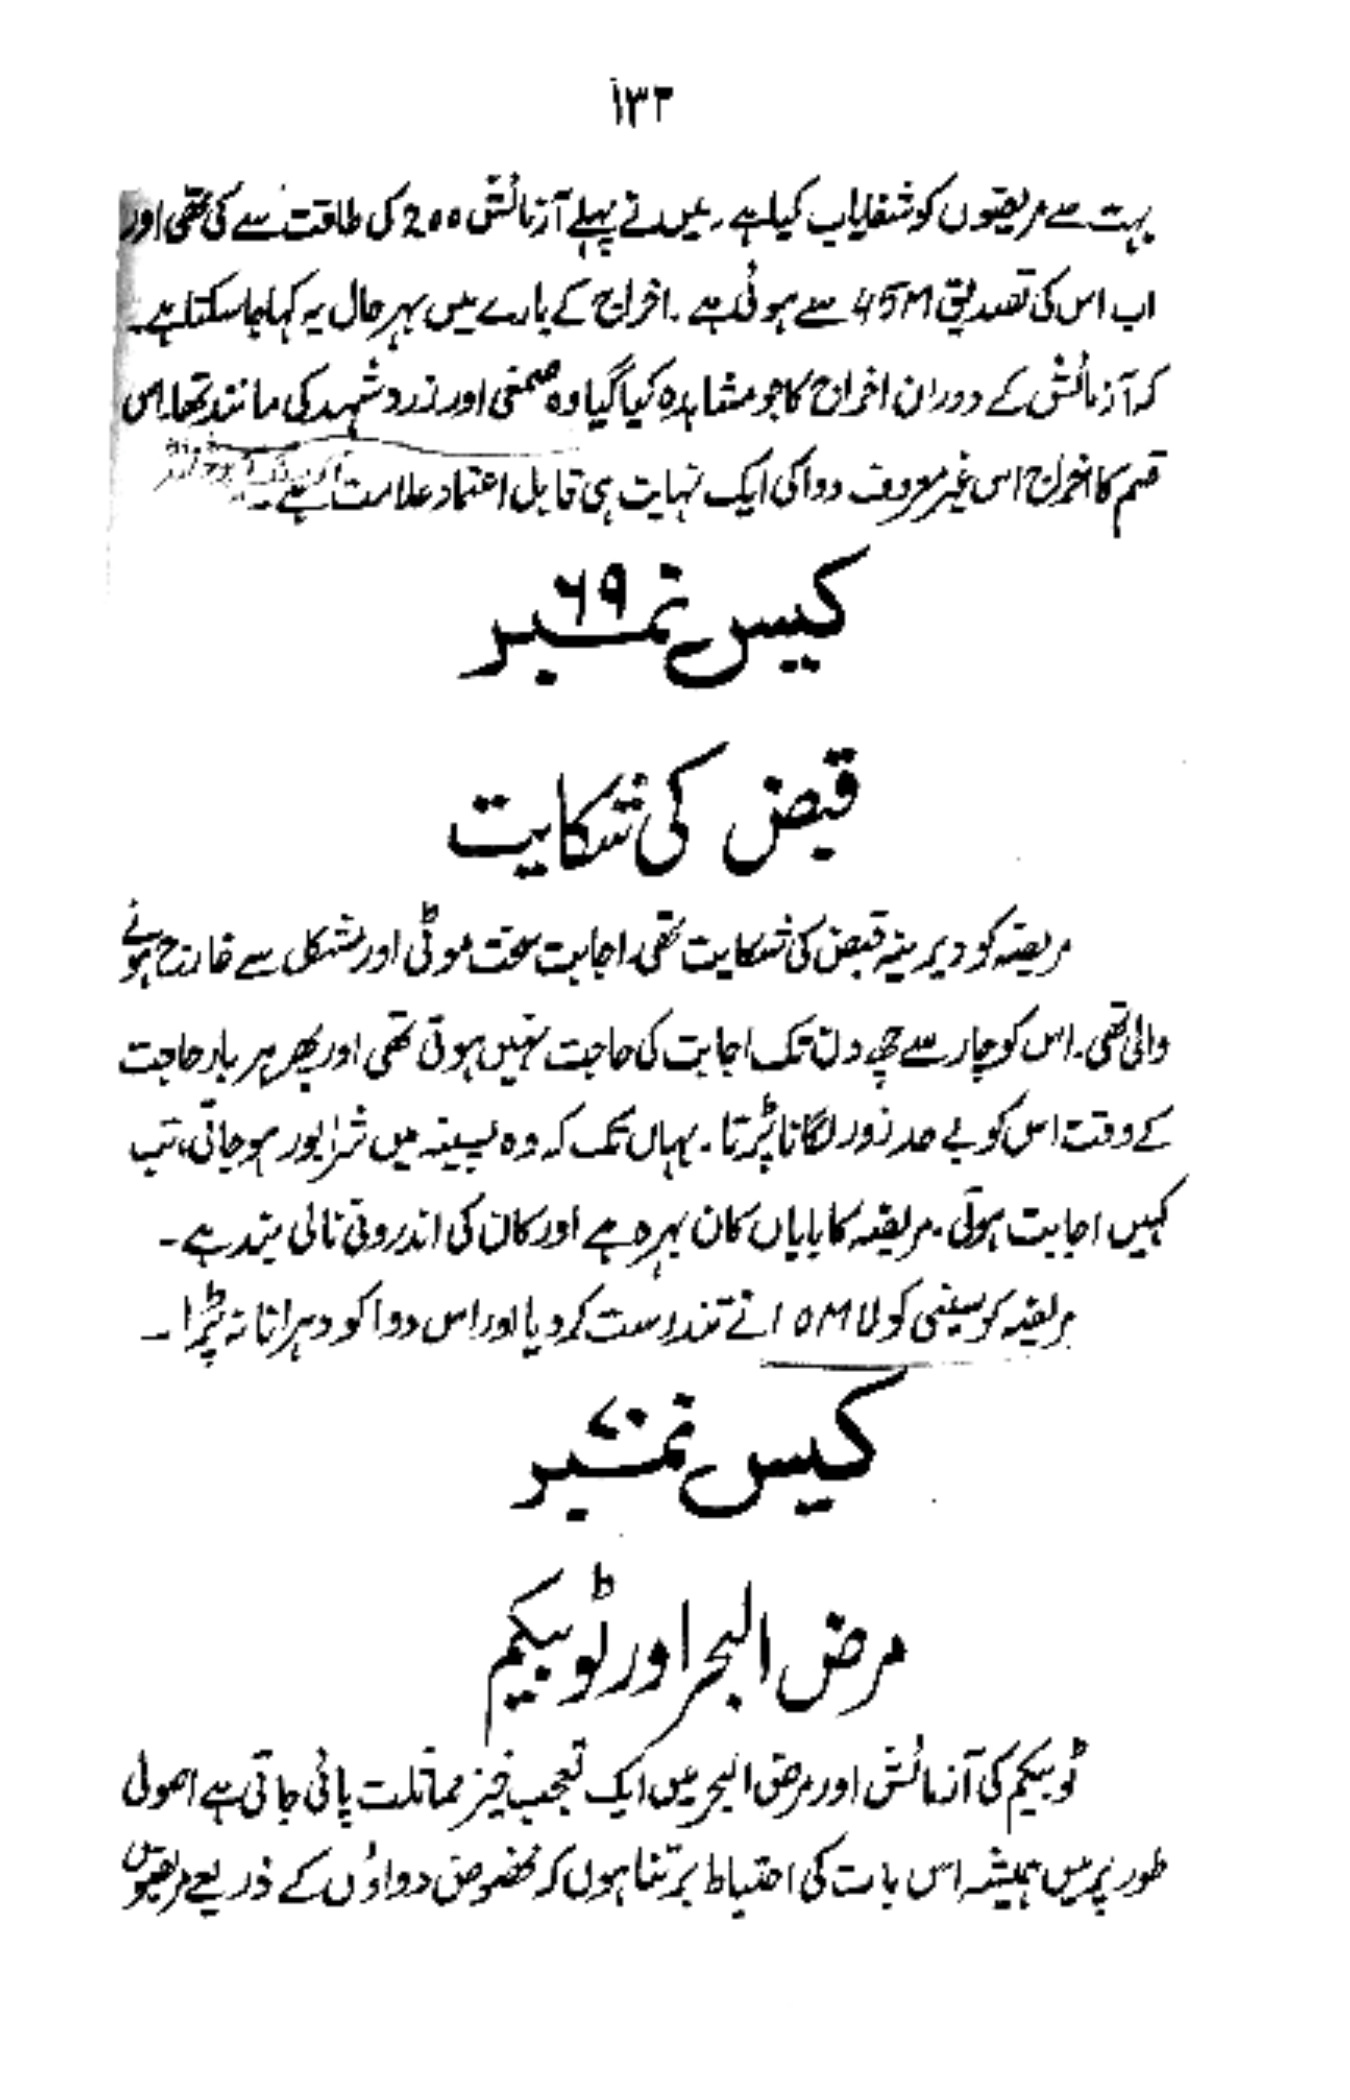 ۱۳۲
بہت سے مریضوں کو شفایاب کیا ہے۔ میں نے پہلے آزمائش 200 کی طاقت سے کی تھی اور
اب اس کی تصدیق 45M سے ہوئی ہے۔ اخراج کے بارے میں بہر حال یہ کہا جا سکتا ہے۔
کہ آزمائش کے دوران اخراج کا جو مشاہدہ کیا گیا وہ صمغی اور زرد شہد کی مانند تھا۔ اس
قسم کا اخراج اس غیر معروف دوا کی ایک نہایت ہی قابل اعتماد علامت ہے۔
کیس نمبر ۶۹
قبض کی شکایت
مریضہ کو دیرینہ قبض کی شکایت تھی۔ اجابت سخت موٹی اور مشکل سے خارج ہونے
والی تھی۔ اس کو چار سے چھ دن تک اجابت کی حاجت نہیں ہوتی تھی اور پھر ہر بار حاجت
کے وقت اس کو بے حد زور لگانا پڑتا۔ یہاں تک کہ وہ پسینہ میں شرابور ہو جاتی، تب
کہیں اجابت ہوتی۔ مریضہ کا بایاں کان بہرہ ہے اور کان کی اندرونی نالی بند ہے۔
مریضہ کو سینی کولا 10M نے تندرست کر دیا اور اس دوا کو دہرانا نہ پڑا۔
کیس نمبر ۷۰
مرض البحر اور ٹوبیکم
ٹوبیکم کی آزمائش اور مرض البحر میں ایک تعجب خیز مماثلت پائی جاتی ہے اصولی
طور پر میں ہمیشہ اس بات کی احتیاط برتتا ہوں کہ مخصوص دواؤں کے ذریعے مریضوں